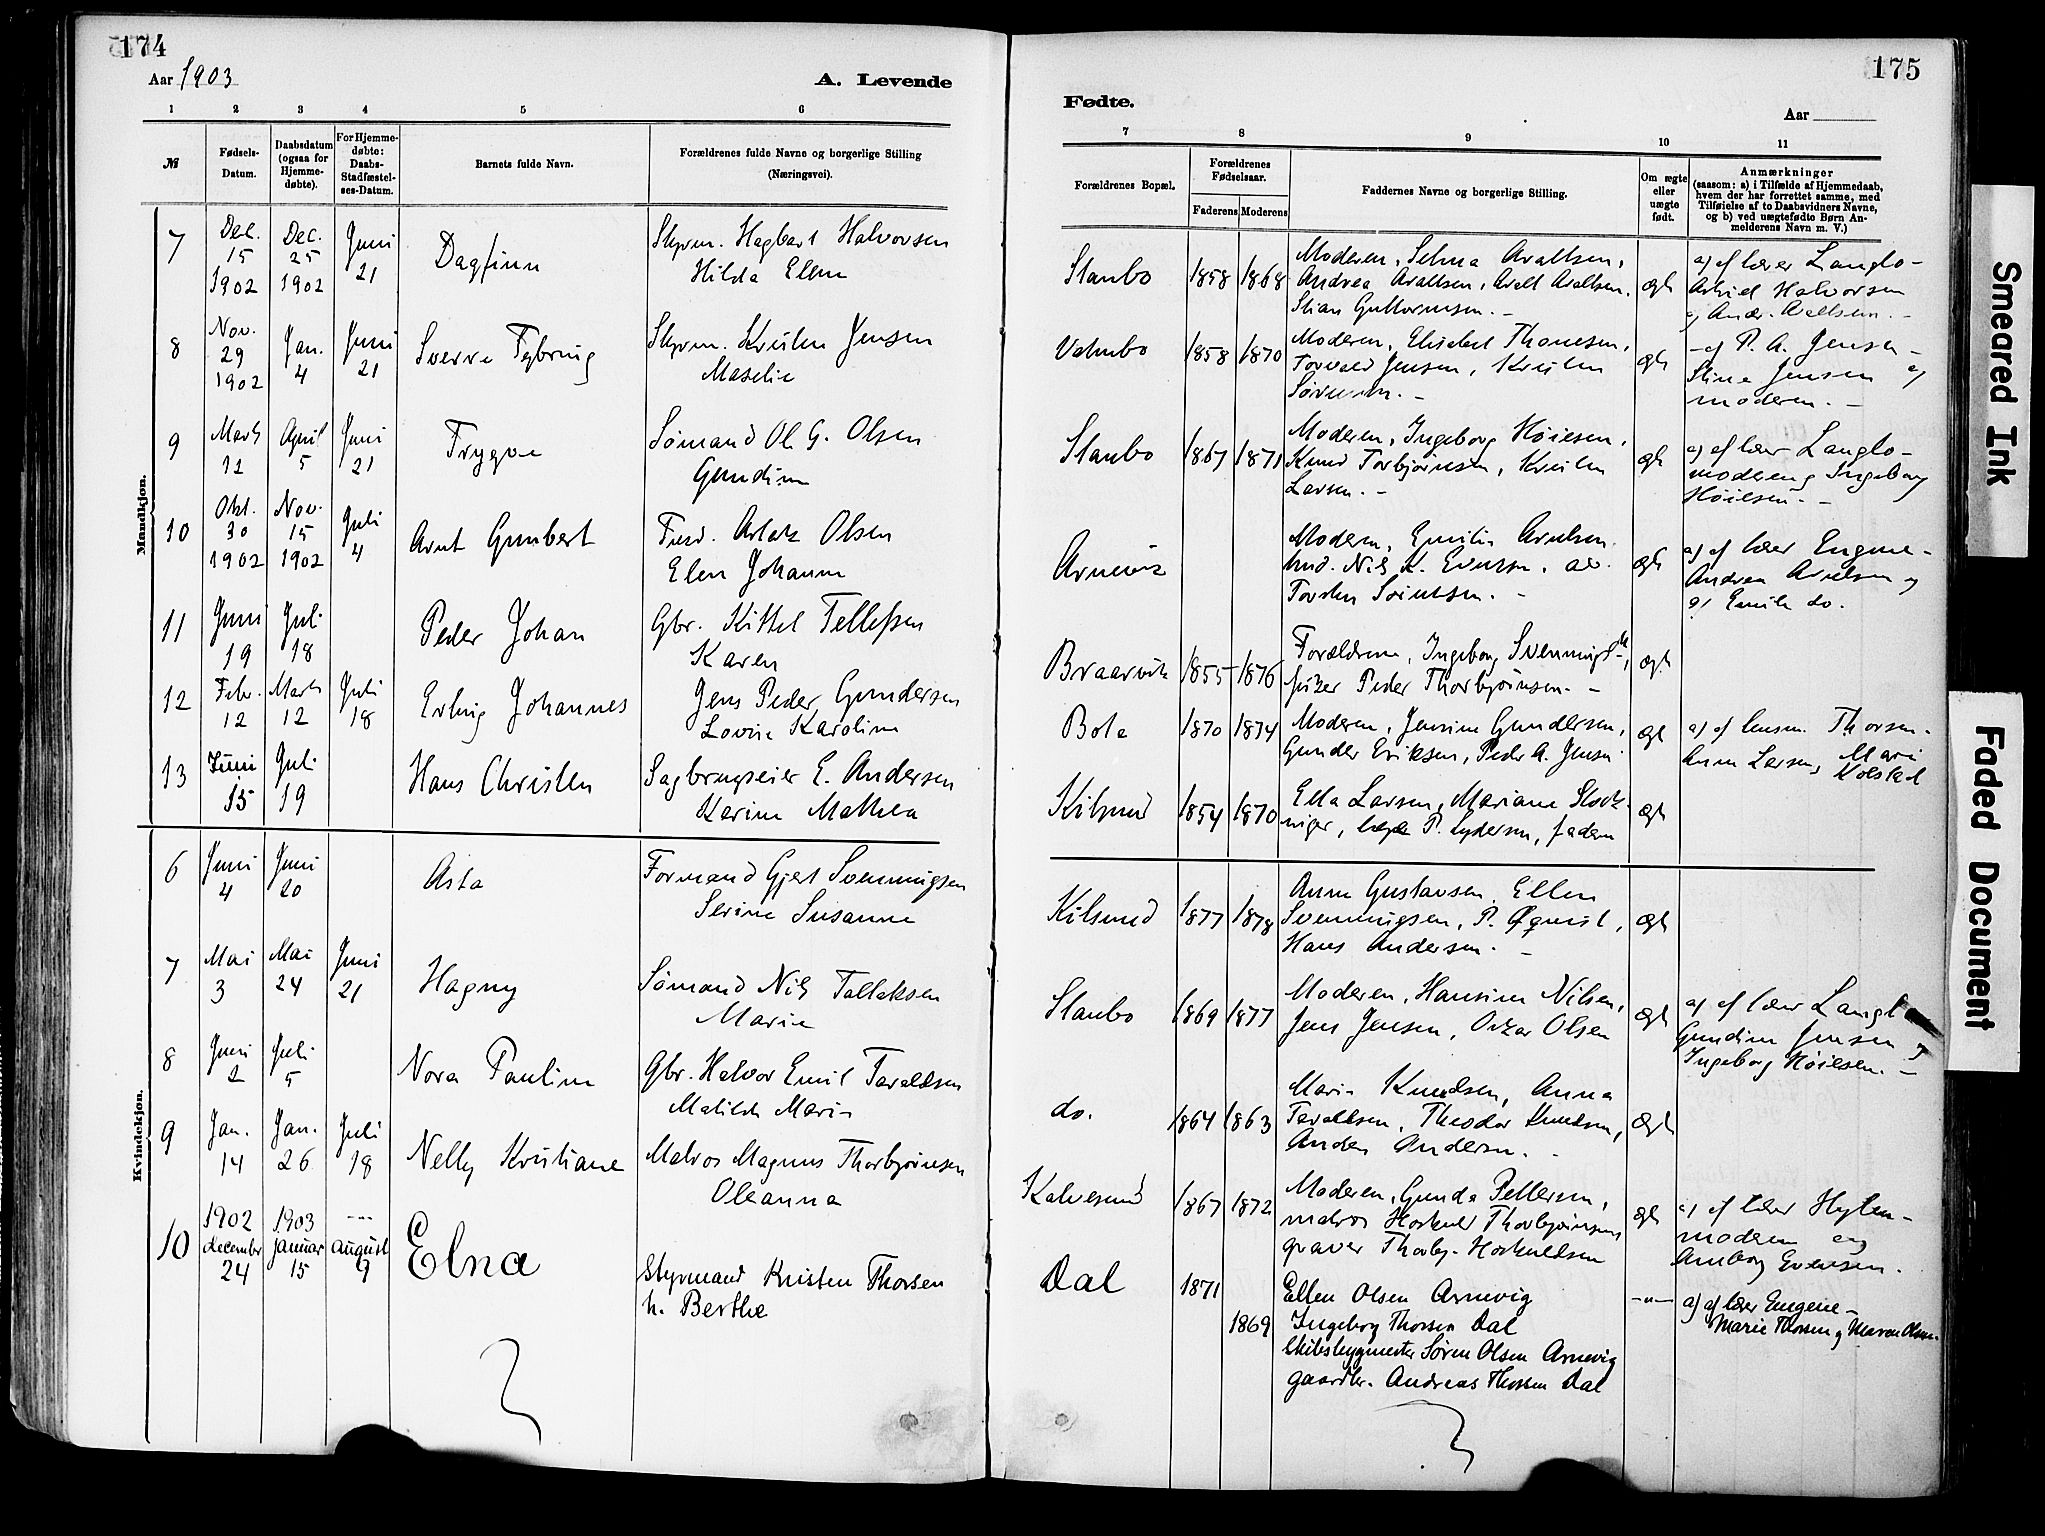 174
Aar 1903
A. Levende
1 2 3 4 5 6
№
Fødsels-
Datum.
Daabsdatum
(ogsaa for
Hjemme-
døbte).
For Hjemme-
døbte:
Daabs-
Stadfæstel-
ses-Datum.
Barnets fulde Navn.
Forældrenes fulde Navne og borgerlige Stilling
(Næringsvei).
Mandkjøn.
7 Dec. 15 1902 Dec. 25 1902 Juni 21 Dagfinn
Styrm. Hagbart Halvorsen
Hilda Elene
8 Nov. 29 1902 Jan. 4 Juni 21 Sverre Fybring
Styrm. Kristen Jensen
Maselie
9 Marts 11 April 5 Juni 21 Trygve
Sømand Ol G. Olsen
Gundine
10 Okt. 30 1902 Nov. 15 1902 Juli 4 Arnt Gunbert
Aslak Olsen
Elen Johanne
11 Juni 19 Juli 18 Peder Johan
Gbr. Kittel Tellefsen
Karen
12 Febr. 12 Marts 12 Juli 18 Erling Johannes
Jens Peder Gundersen
Lovise Karoline
13 Juni 15 Juli 19 Hans Christen
Sagbrugseier E. Andersen
Karine Mathea
Kvindekjøn.
6 Juni 4 Juni 20 Asta
Formand Gjert Svenningsen
Serine Susanne
7 Mai 3 Mai 24 Juni 21 Hagny
Sømand Nils Tallaksen
Marie
8 Juni 2 Juli 5 Nora Pauline
Gbr. Halvor Emil Taraldsen
Matilde Marie
9 Jan. 14 Jan. 26 Juli 18 Nelly Kristiane
Matros Magnus Thorbjørnsen
Oleanna
10 1902 december 24 1903 januar 15 --- august 9 Elna
Styrmand Kristen Thorsen
h. Berthe
175
Fødte.
Aar
7 8 9 10 11
Forældrenes Bopæl.
Forældrenes
Fødselsaar.
Faderens Moderens
Faddernes Navne og borgerlige Stilling.
Om ægte
eller
uægte
født.
Anmærkninger
(saasom: a) i Tilfælde af Hjemmedaab,
hvem der har forrettet samme, med
Tilføielse af to Daabsvidners Navne,
og b) ved uægtefødte Børn An-
melderens Navn m. V.)
Staubo 1858 1868
Moderen, Selma Avaltsen,
Andrea Avaltsen, Avalt Avaltsen,
Stian Guttormsen. -
ægte
a) af lærer Langlo -
Astrid Halvorsen
og Andr. Avaltsen. -
1858 1870
Moderen, Elisabet Thomesen,
Torvald Jensen, Kristen
Sørensen. -
ægte
- af P. A. Jensen -
Stine Jensen og
moderen. -
Staubo 1867 1871
Moderen, Ingeborg Høiesen,
Knud Torbjørnsen, Kristen
Larsen. -
ægte
a) af lærer Langlo -
moderen og Ingeborg
Høiesen. -
Arnevik
Moderen, Emilie Arntsen
Nils K. Evensen,
Torsten Sørensen. -
ægte
a) af lærer Eugene -
Andrea Arntsen og
Emilie do.
Braarvik 1855 1876
Forældrene, Ingeborg Svennings
Peder Thorbjørnsen. -
ægte
Bota 1870 1874
Moderen, Jensine Gundersen,
Gunder Eriksen, Peder A. Jensen
ægte
a) af Thorsen.
Anne Larsen, Mari
Kolstad
Kilsund 1854 1870
Ella Larsen, Mariane
P. Lydersen, faderen
ægte
Kilsund 1877 1878
Anne Gustavsen, Ellen
Svenningsen, P. Øquist,
Hans Andersen. -
ægte
Staubo 1869 1877
Moderen, Hansine Nilsen,
Jens Jensen, Oskar Olsen
ægte
a) af lærer Langlo
Gundine Jensen og
Ingeborg Høiesen. -
do. 1864 1863
Marie Knudsen, Anna
Taraldsen, Theodor Knudsen,
Anders Andersen. -
ægte
Kalvesund 1867 1872
Moderen, Gunda Pettersen,
matros Hoskuld Thorbjørnsen
graver Thorbj. Hoskuldsen
ægte
a) af lærer Hylen -
moderen og
Anborg Evensen.
Dal 1871 1869
Ellen Olsen Arnevig
Ingeborg Thorsen Dal
Skibsbygmester Søren Olsen Arnevig
gaardbr. Andreas Thorsen Dal
-"-
a) af lærer Eugene -
Marie Thorsen og Maren Olsen.
Smeared Ink
Faded Document